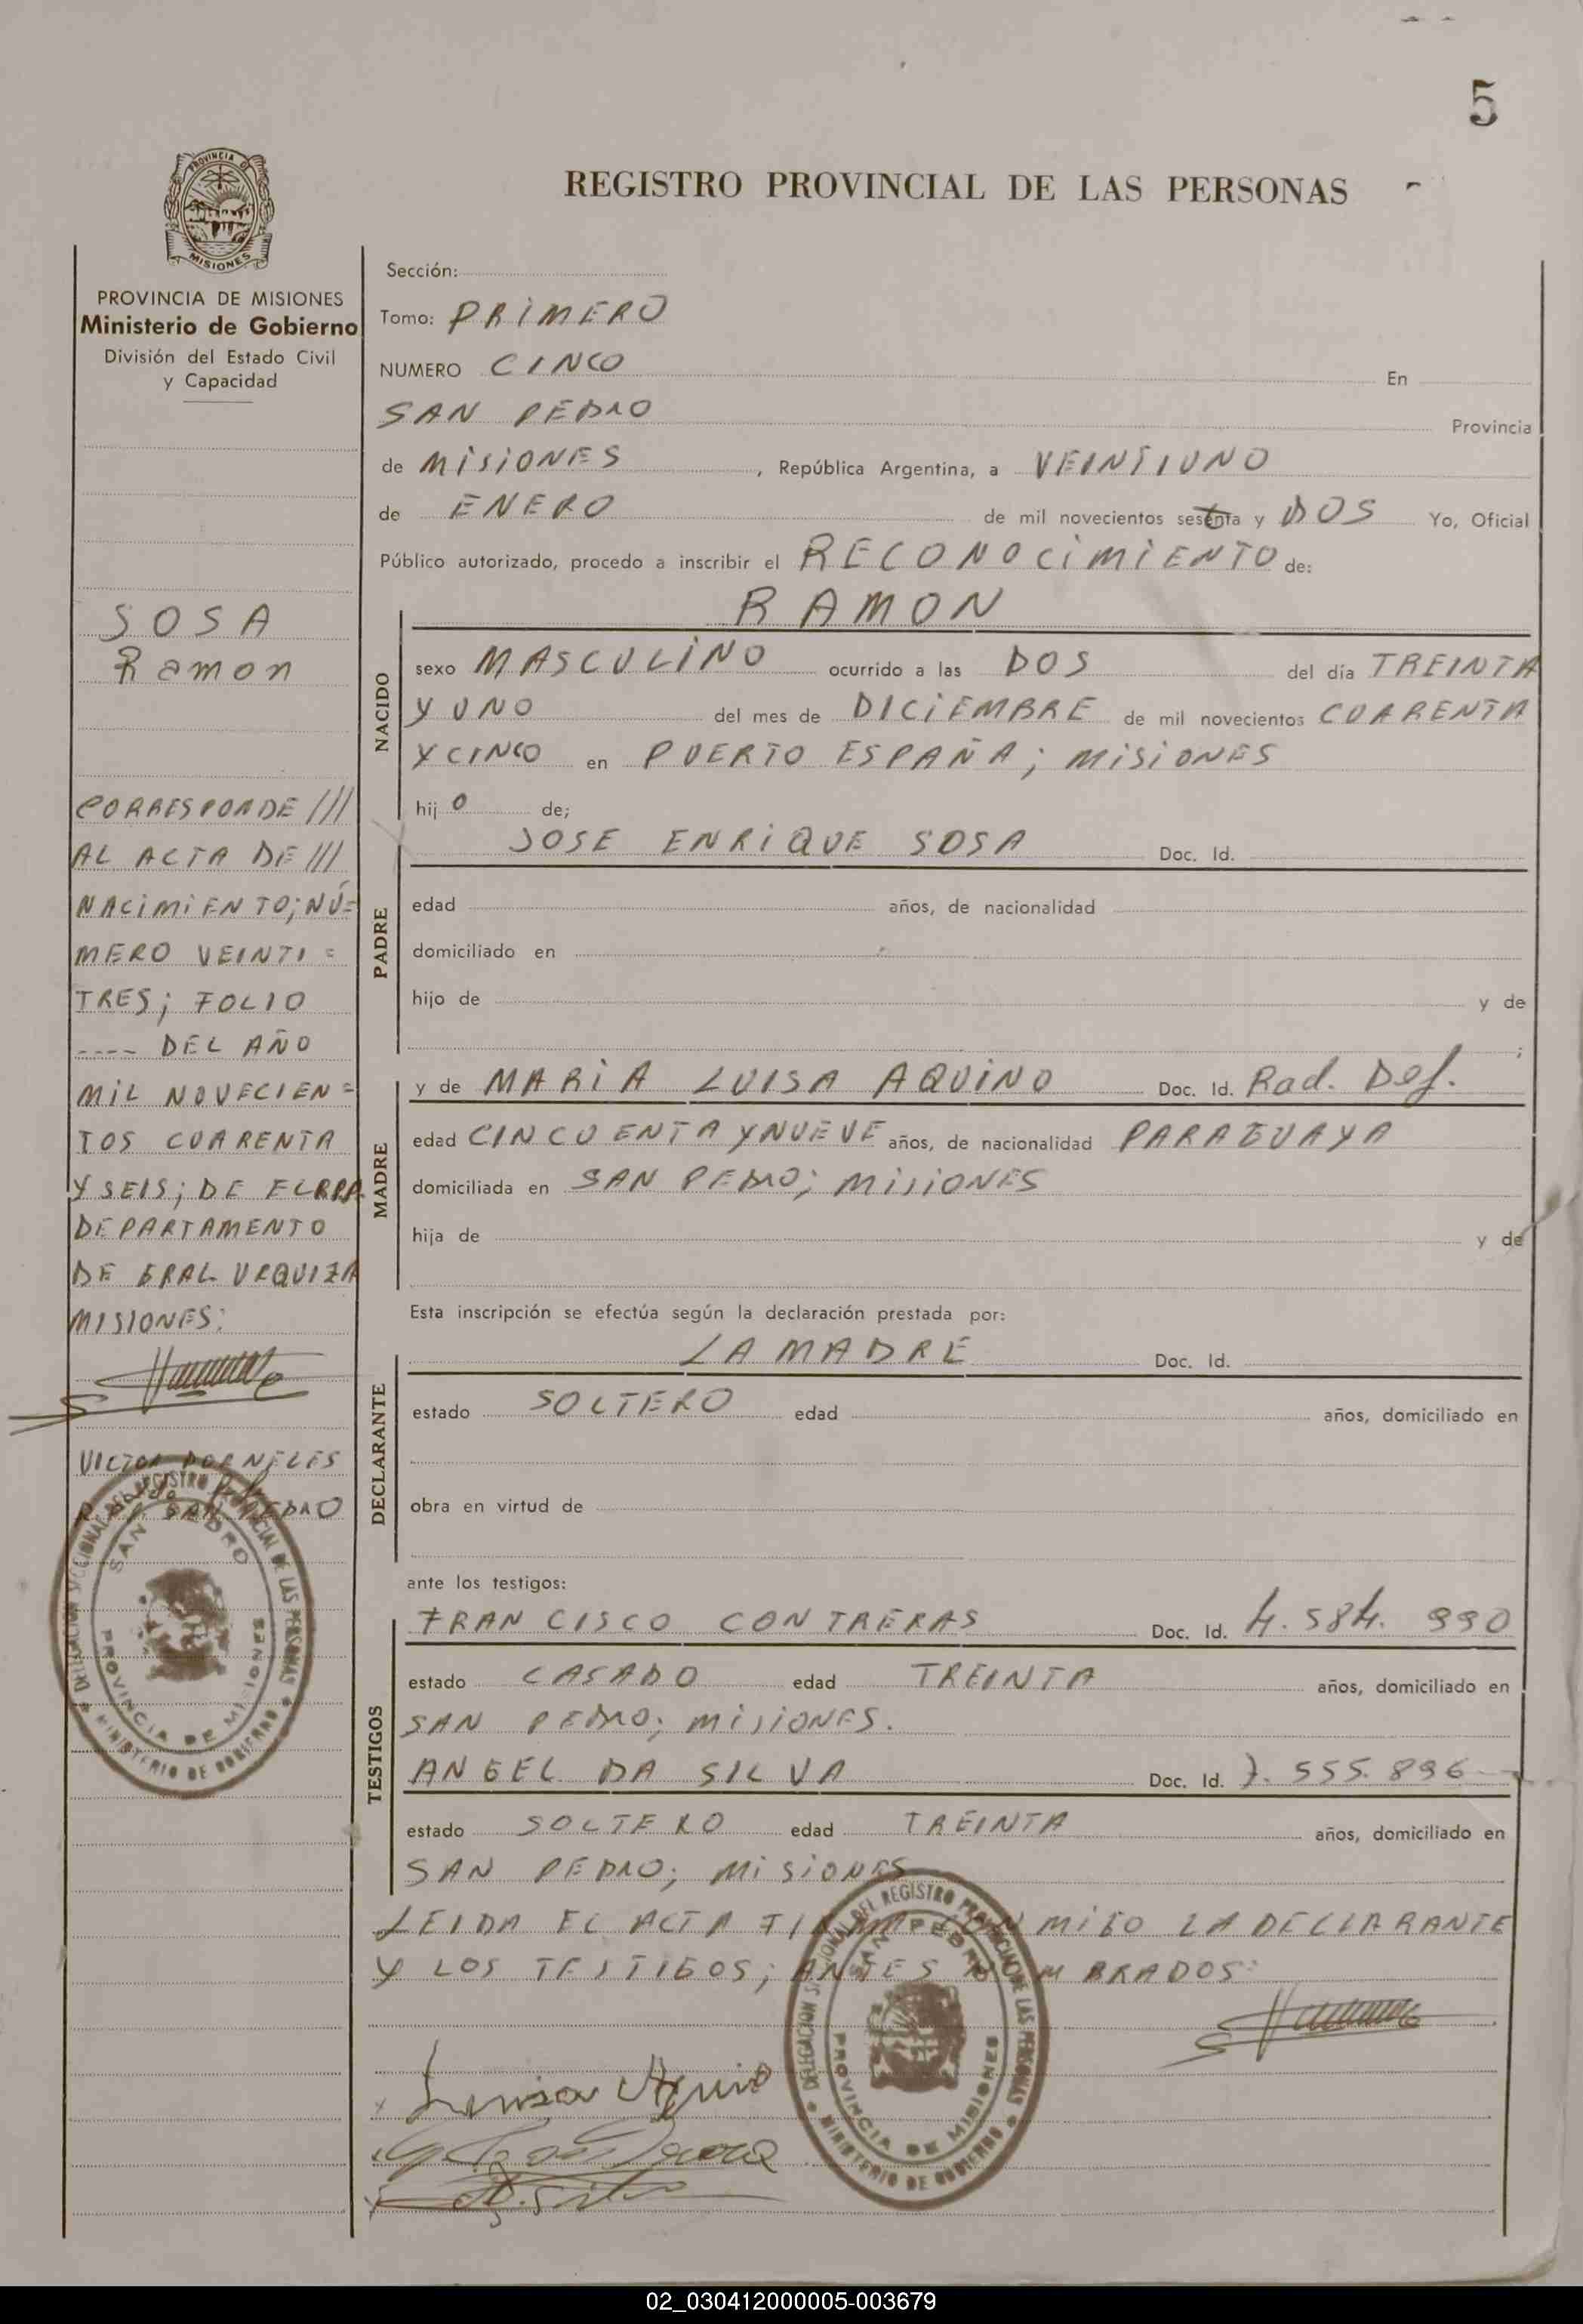 5
REGISTRO PROVINCIAL DE LAS PERSONAS
PROVINCIA DE MISIONES
MISIONES
PROVINCIA DE MISIONES
Ministerio de Gobierno
División del Estado Civil
y Capacidad
SOSA
Ramon
CORRESPONDE ///
AL ACTA DE ///
NACIMIENTO; NÚ=
MERO VEINTI =
TRES; FOLIO
---- DEL AÑO
MIL NOVECIEN=
TOS CUARENTA
Y SEIS; DE
DEPARTAMENTO
DE GRAL URQUIZA
MISIONES:
VICTOR DORNELES
SAN PEDRO
DELEGACION SECCIONAL DEL REGISTRO PROVINCIAL DE LAS PERSONAS
SAN PEDRO
PROVINCIA DE MISIONES
MINISTERIO DE GOBIERNO
Sección:
Tomo: PRIMERO
NUMERO CINCO En
SAN PEDRO Provincia
de MISIONES , República Argentina, a VEINTIUNO
de ENERO de mil novecientos sesenta y DOS Yo, Oficial
Público autorizado, procedo a inscribir el RECONOCIMIENTO de:
RAMON
NACIDO
sexo MASCULINO ocurrido a las DOS del día TREINTA
Y UNO del mes de DICIEMBRE de mil novecientos CUARENTA
Y CINCO en PUERTO ESPAÑA; MISIONES
hijo de;
PADRE
JOSE ENRIQUE SOSA Doc. Id.
edad años, de nacionalidad
domiciliado en
hijo de y de
;
MADRE
y de MARIA LUISA AQUINO Doc. Id. Rad. Def.
edad CINCUENTA Y NUEVE años, de nacionalidad PARAGUAYA
domiciliada en SAN PEDRO; MISIONES
hija de y de
Esta inscripción se efectúa según la declaración prestada por:
DECLARANTE
LA MADRE Doc. Id.
estado SOLTERO edad años, domiciliado en
obra en virtud de
ante los testigos:
TESTIGOS
FRANCISCO CONTRERAS Doc. Id. 4.584.990
estado CASADO edad TREINTA años, domiciliado en
SAN PEDRO; MISIONES.
ANGEL DA SILVA Doc. Id. 7.555.896
estado SOLTERO edad TREINTA años, domiciliado en
SAN PEDRO; MISIONES
LEIDA EL ACTA FIRMAN CON MIGO LA DECLARANTE
Y LOS TESTIGOS; ANTES NOMBRADOS:
Luisa Aquino
DELEGACION SECCIONAL DEL REGISTRO PROVINCIAL DE LAS PERSONAS
SAN PEDRO
PROVINCIA DE MISIONES
MINISTERIO DE GOBIERNO
02_030412000005-003679